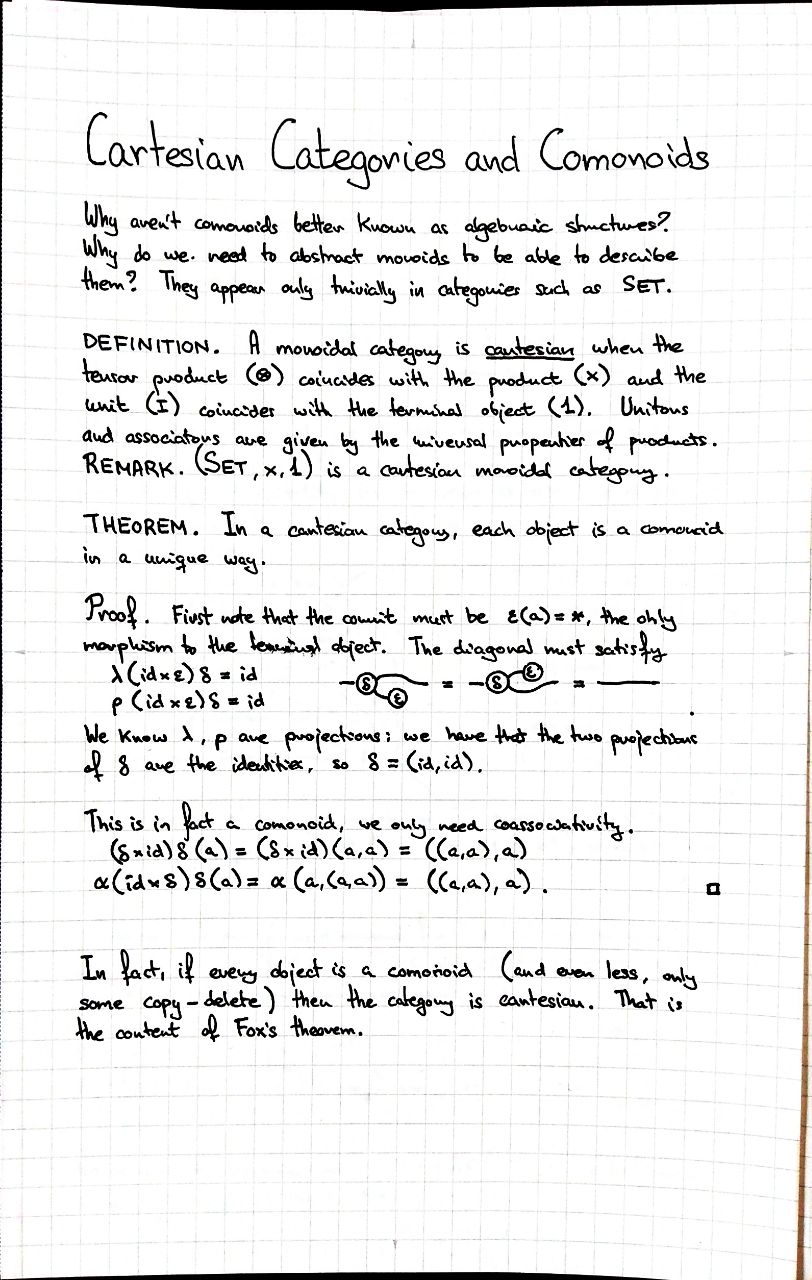 Cartesian Categories and Comonoids
Why aren't comonoids better known as algebraic structures?
Why do we need to abstract monoids to be able to describe
them? They appear only trivially in categories such as SET.
DEFINITION. A monoidal category is cartesian when the
tensor product (⊗) coincides with the product (×) and the
unit (I) coincides with the terminal object (1). Unitors
and associators are given by the universal properties of products.
REMARK. (SET, ×, 1) is a cartesian monoidal category.
THEOREM. In a cartesian category, each object is a comonoid
in a unique way.
Proof. First note that the counit must be ε(a) = *, the only
morphism to the terminal object. The diagonal must satisfy
λ(id×ε)δ = id δ ε = δ ε =
ρ(id×ε)δ = id
We know λ, ρ are projections; we have that the two projections
of δ are the identities, so δ = (id, id).
This is in fact a comonoid, we only need coassociativity.
(δ×id)δ(a) = (δ×id)(a,a) = ((a,a),a)
α(id×δ)δ(a) = α(a,(a,a)) = ((a,a),a). □
In fact, if every object is a comonoid (and even less, only
some copy-delete) then the category is cartesian. That is
the content of Fox's theorem.